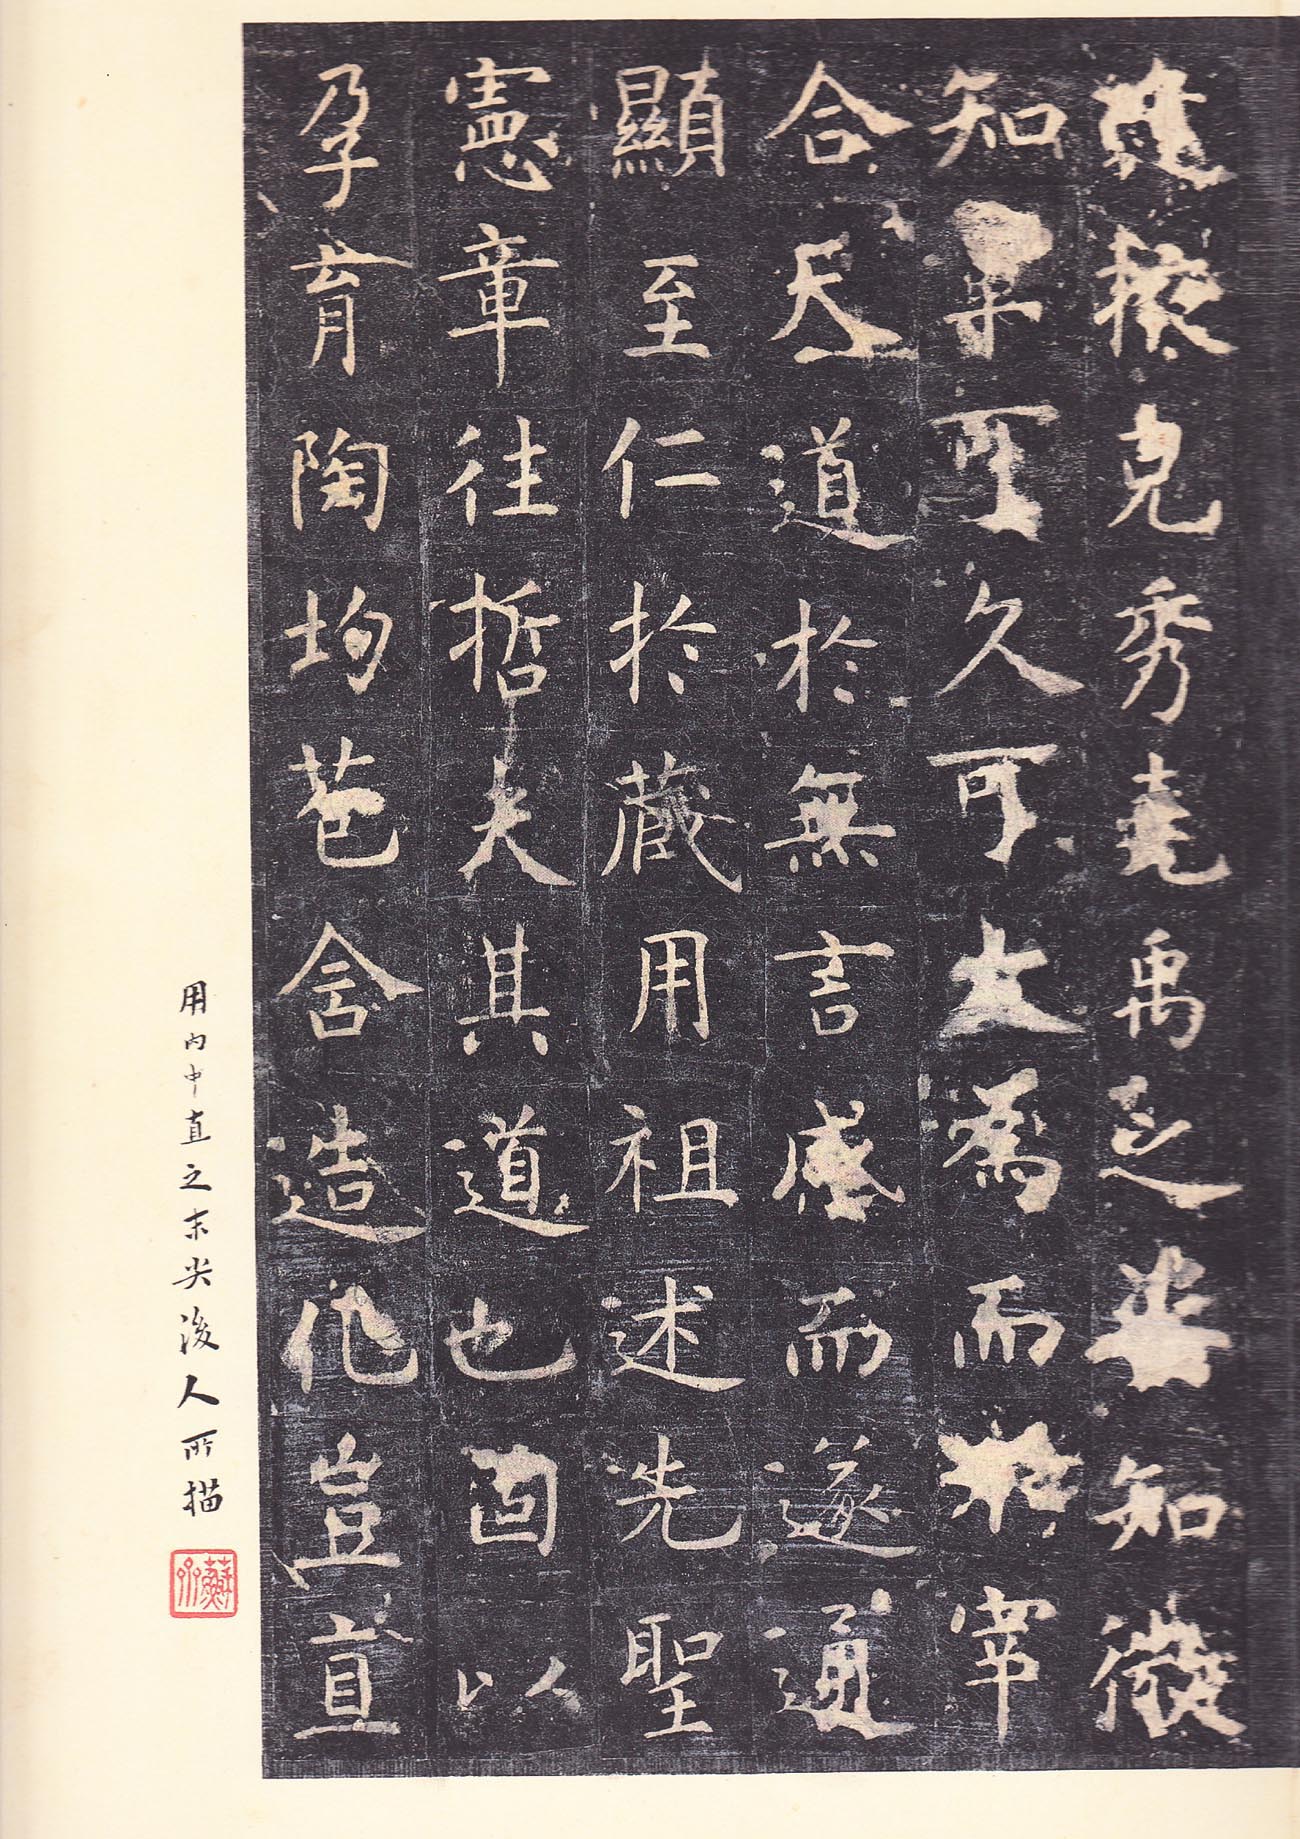 逢掖克秀堯禹之姿知微
知章可久可大為而不宰
合天道於無言感而遂通
顯至仁於藏用祖述先聖
憲章往哲夫其道也固以
孕育陶均苞含造化豈直
用内中直之末尖後人所描